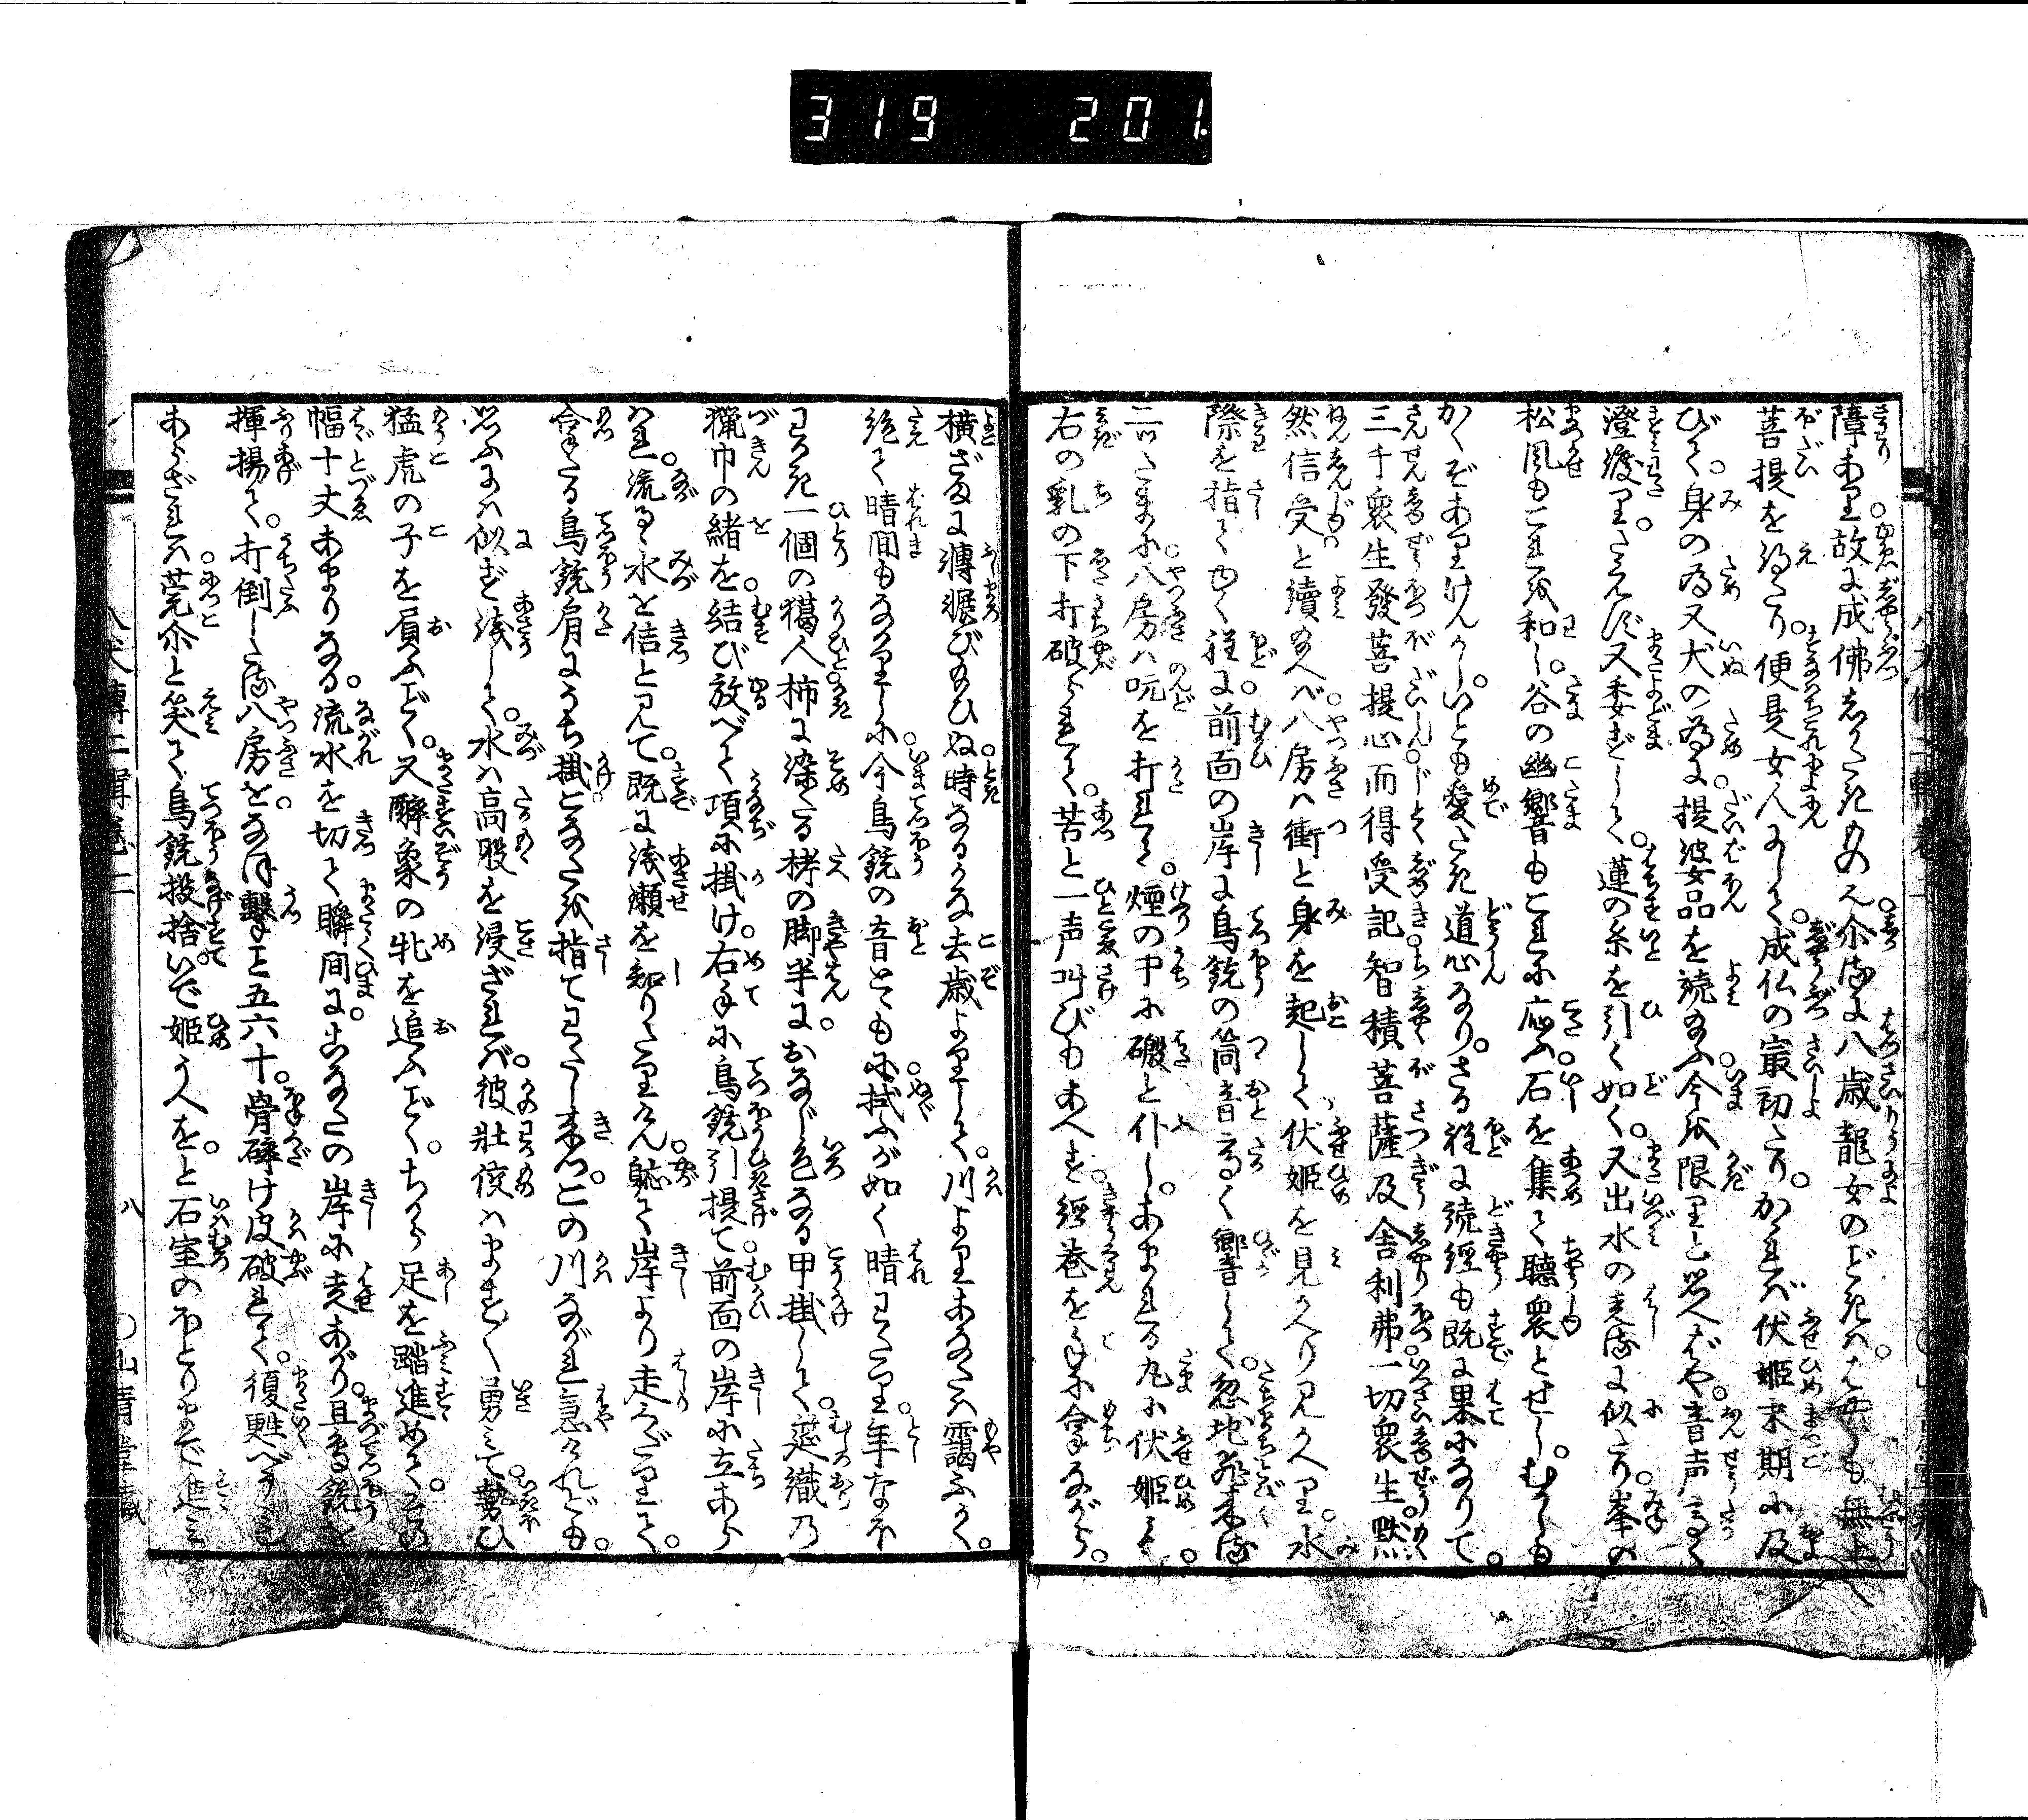 319 201.
障あり故に成佛しがたきものみ尒るに八歳龍女のごときははやくも無上
菩提を得たり。便是女人にして。成仏の最初たり。かゝれば伏姫末期に及
びて。身の為又犬の為に。提婆品を読給ふ今を限りと思へばや。音声高く
澄渡り。たえず又委ずして。蓮の糸を引く如く。又出水の走るに似たり。峯の
松風もこれを和し。谷の幽響もこれに応ふ。石を集て聴衆とせし。むかしも
かくぞありけんかし。いとも愛たき道心なり。さる程に読経も既に果になりて。
三千衆生發菩提心而得受記智積菩薩及舎利弗一切衆生黙
然信受と續給へば八房は衝と身を起して伏姫を見かへり見かへり。水
際を指てゆく程に。前面の岸に鳥銃の筒音高く響して。忽地飛来る
二ツだまに八房は吭を打れて。煙の中に磤と仆し。あまれる丸に伏姫も。
右の乳の下打破られて。苦と一声叫びもあへず。経巻を手に拿ながら。
横ざまに滾輾び給ひぬ。時なるかな去歳よりして。川よりあなたは靄ふかく。
絶て晴間もなかりしに。今鳥銃の音とゝもに。拭ふが如く晴わたり。年なほ
わかき一個の猟人柿に染たる栲の脚半に。おなじ色なる甲掛して。筵織の
獵巾の緒を。結び放べて項に掛け。右手に鳥銃引提て。前面の岸に立あら
はれ。流るゝ水を佶と見て。既に浅瀬を知りたりけん。軈て岸より走くだりて。
拿たる鳥銃肩にうち掛。こなたを指てわたし来つ。この川ながれ急けれども。
思ふには似ず浅して。水は高股を浸ざれば。彼壮佼はますます勇みて。勢ひ
猛虎の子を屓ふごとく。又臍象の牝を追ふごとく。ちから足を踏進めて。その
幅十丈あまりなる。流水を切て瞬間に。こなたの岸に走あがり。且鳥銃を
揮揚て。打倒したる八房を。なほ撃こと五六十。骨砕け皮破れて。復甦べうも
あらざれば。莞尒と笑て鳥銃投捨。いで姫うへを。と石室のほとりまで進み
八犬傳二輯巻二 八 〇山青堂藏